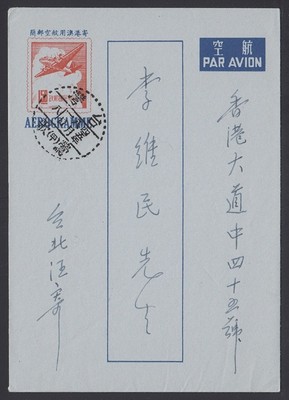 寄港澳用航空郵簡
航空
PAR AVION
AEROGRAMME
香港大道中四十五號
李維民先生
台北汪寄